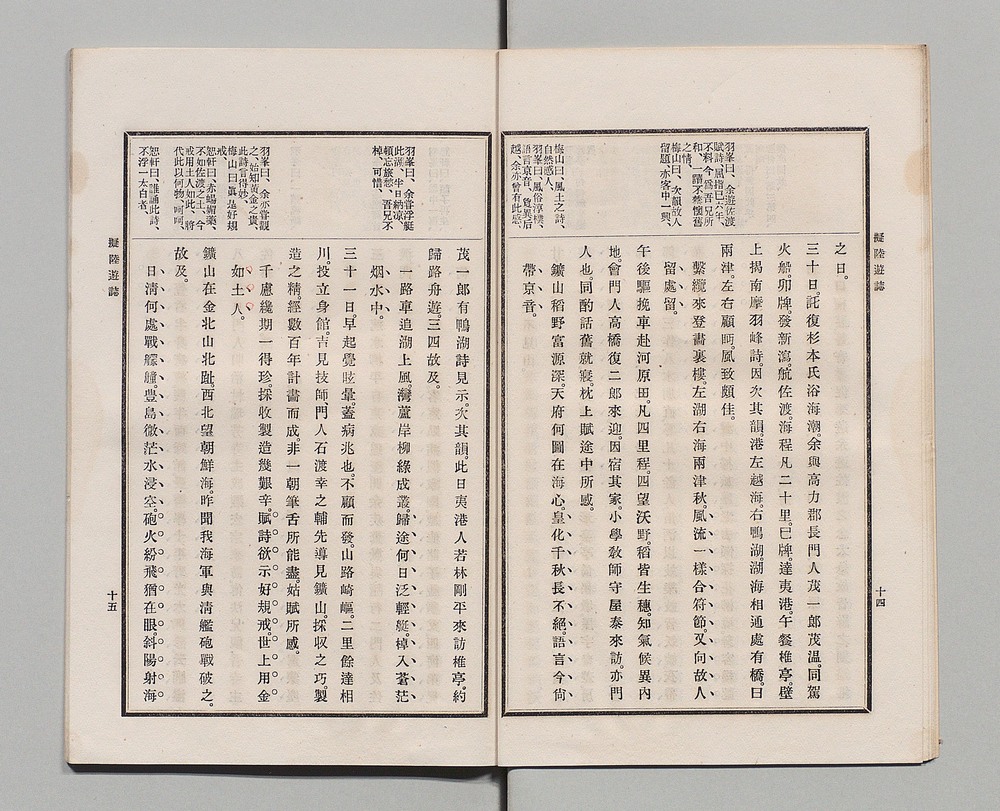 擬陸遊誌
十四
羽峯曰、余遊佐渡
賦詩、屈指已六年、
不料今爲吾兄所
和、一讀不禁懷舊
之情、
梅山曰、次韻故人
留題、亦客中一興、
梅山曰、風土之詩、
自然感人、
羽峯曰、風俗淳樸、
語言京音、貧異后
越、余亦曾有此感、
之日。
三十日。託復杉本氏浴海潮。余與高力郡長門人茂一郎茂溫。同駕
火船。卯牌。發新瀉航佐渡。海程凡二十里。巳牌。達夷港。午餐椎亭。壁
上揭南摩羽峰詩。因次其韻。港左越海。右鴨湖。湖海相通處有橋。曰
兩津。左右顧眄。風致頗佳。
繫纜來登書裏樓。左湖右海兩津秋。風流一樣合符節。又向故人
留處留。
午後驅挽車赴河原田。凡四里程。四望沃野。稻皆生穗。知氣候異內
地。會門人高橋復二郎來迎。因宿其家。小學教師守屋泰來訪。亦門
人也。同酌話舊就寢。枕上賦途中所感。
鑛山稻野富源深。天府何圖在海心。皇化千秋長不絕。語言今尙
帶京音。
擬陸遊誌
十五
羽峯曰、余嘗浮艇
此湖、半日納凉、
頓忘旅愁、吾兄不
棹、可惜、
羽峯曰、余亦嘗觀
之、始知黃金之貴、
此詩言得妙、
梅山曰、眞是好規
戒、
恕軒曰、赤蝎媚藥、
不如佐渡之土、今
戒用土人如此、將
代此以何物、呵呵、
恕軒曰、誰誦此詩、
不浮一太白者、
茂一郎有鴨湖詩見示。次其韻。此日夷港人若林剛平來訪椎亭。約
歸路舟遊。三四故及。
一路車追湖上風。灣蘆岸柳綠成叢。歸途何日泛輕艇。棹入蒼茫
烟水中。
三十一日。早起覺眩暈。蓋病兆也。不顧而發。山路崎嶇。二里餘達相
川。投立身館。吉見技師門人石渡幸之輔先導見鑛山。採収之巧。製
造之精。經數百年計畫而成。非一朝筆舌所能盡。姑賦所感。
千慮纔期一得珍。採收製造幾艱辛。賦詩欲示好規戒。世上用金
如土人。
鑛山在金北山北趾。西北望朝鮮海。昨聞我海軍與清艦砲戰破之。
故及。
日淸何處戰艨艟。豊島微茫水浸空。砲火紛飛猶在眼。斜陽射海